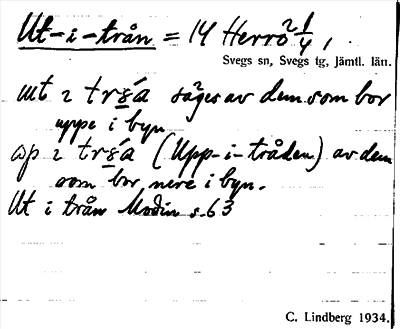 Ut-i-trån = 14 Herrö 2 1/4,
Svegs sn, Svegs tg, Jämtl. län.
ut ı trs̲á säges av dem som bor
uppe i byn
up ı trs̲á (Upp-i-tråden) av dem
som bor nere i byn.
Ut i trån Modin s. 63
C. Lindberg 1934.